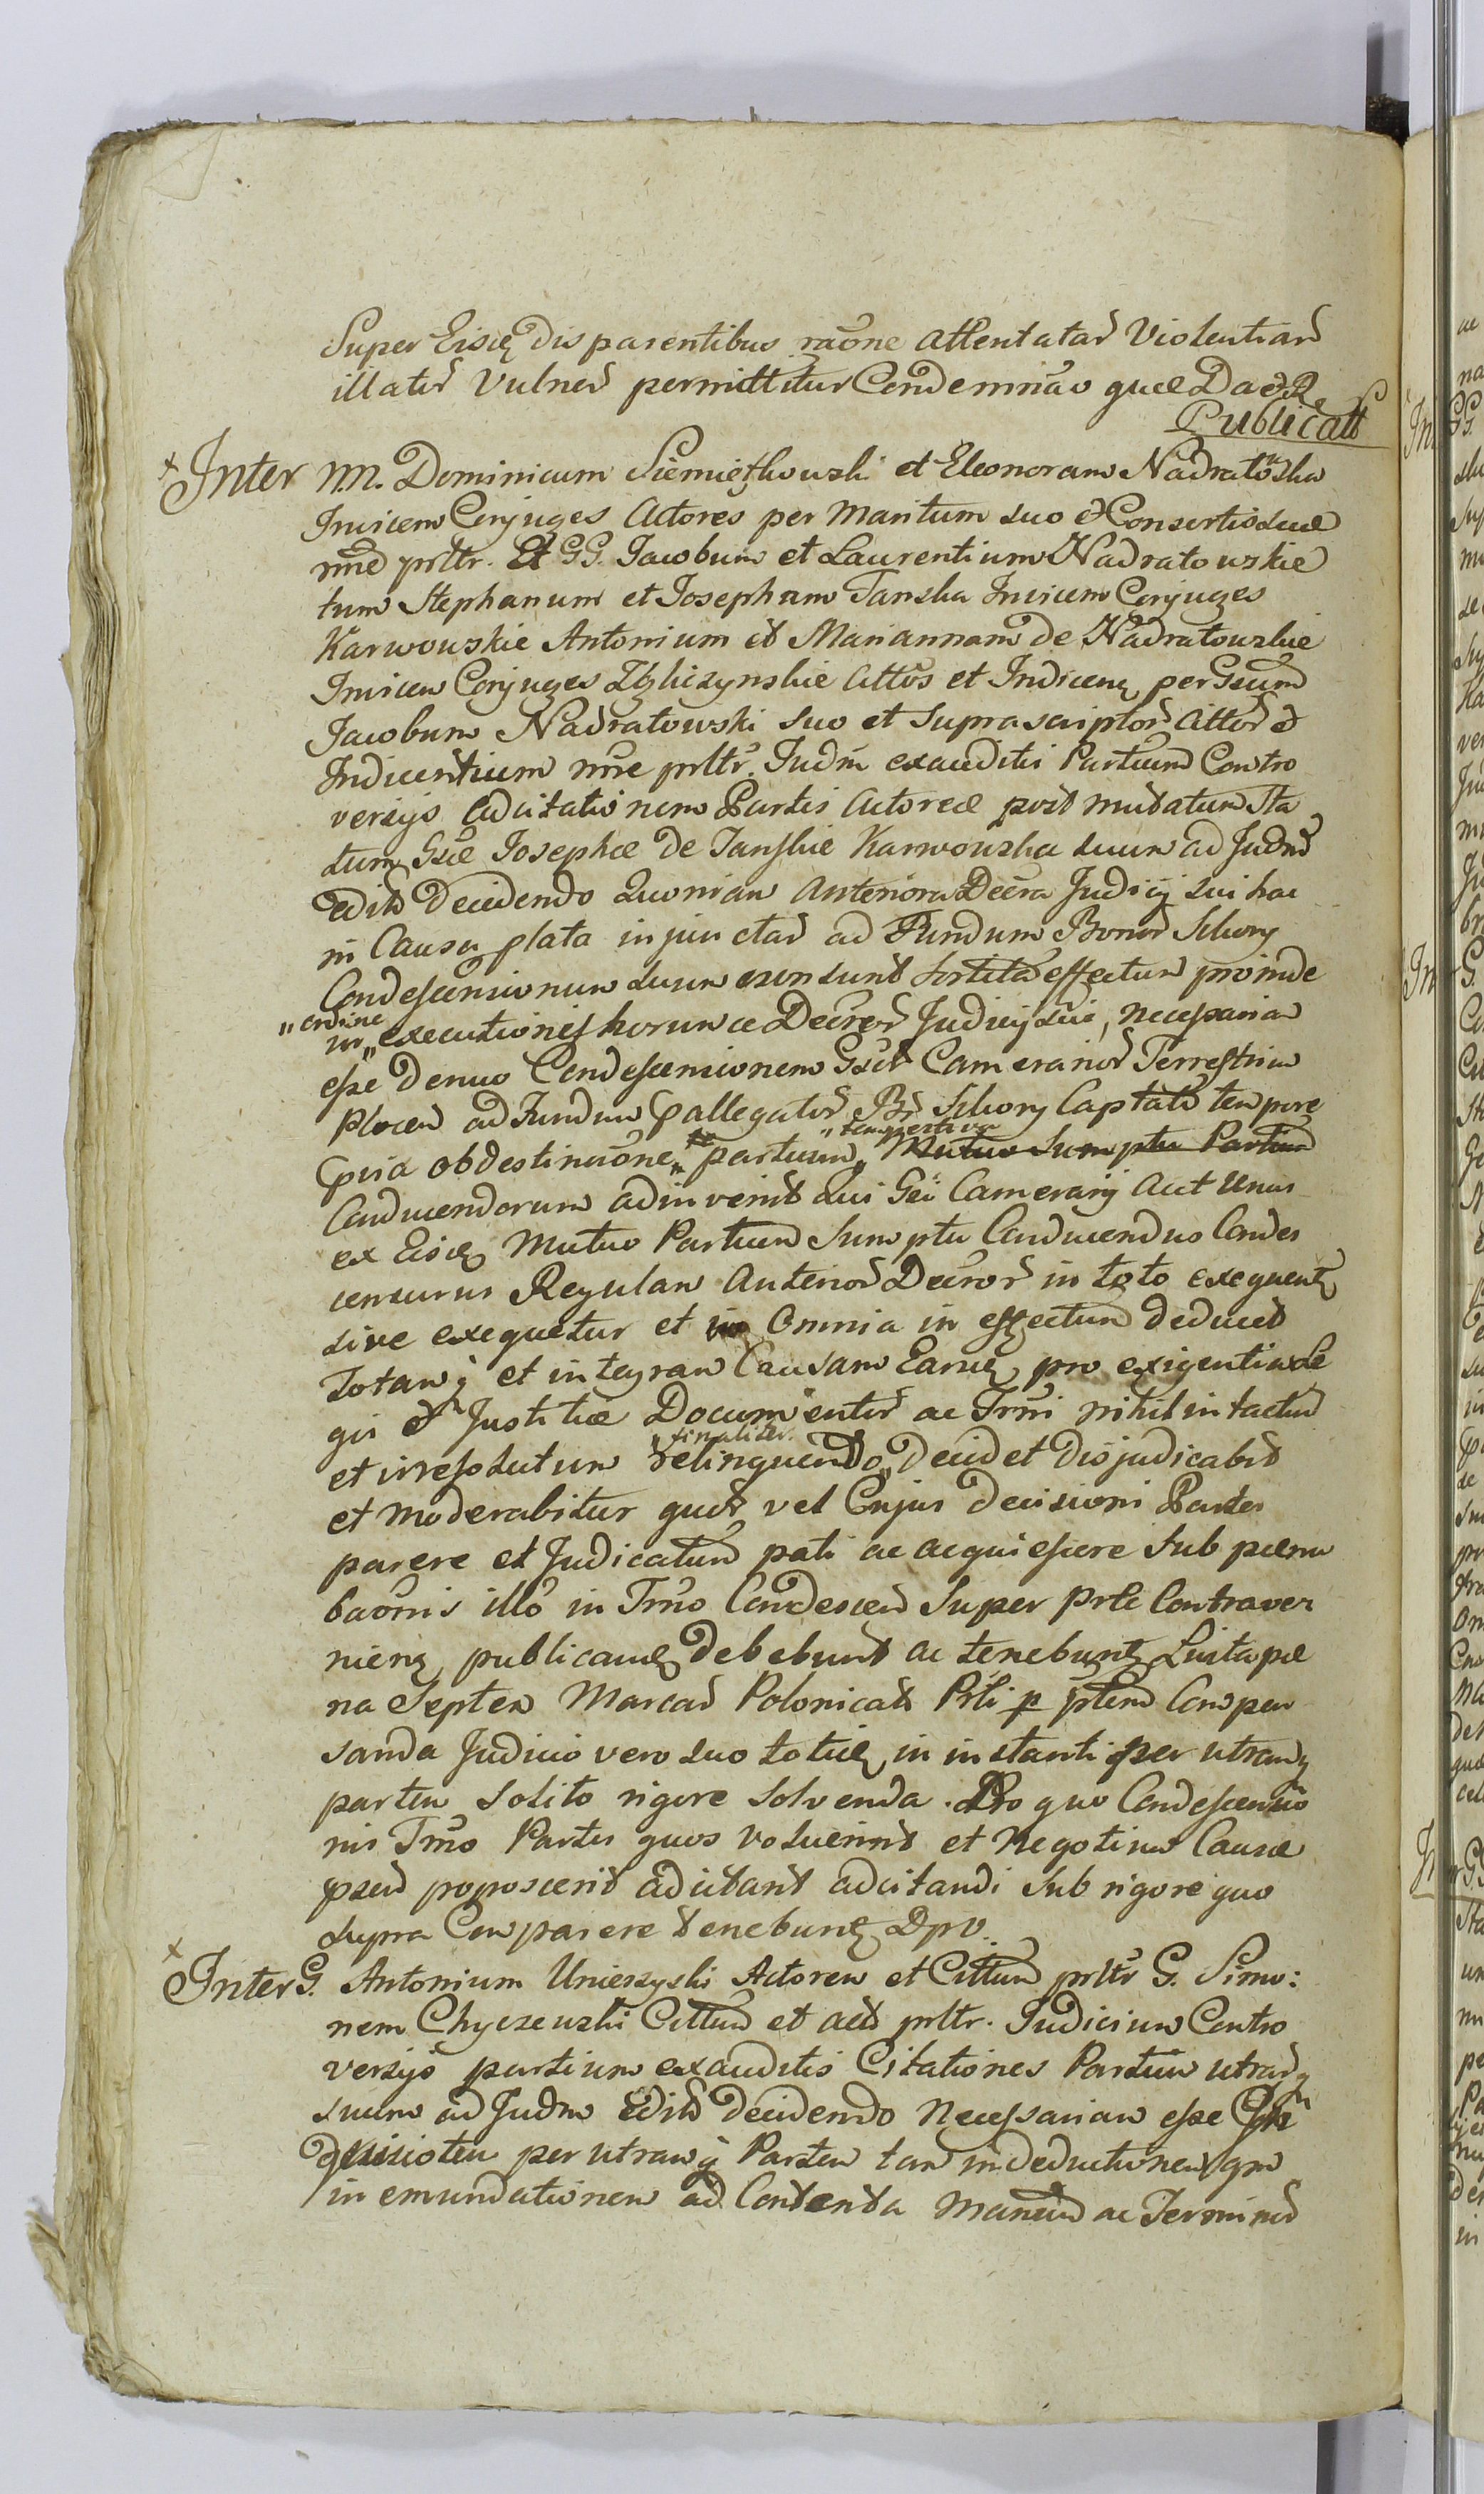 Super Eisdē disparentibus raōne attentatar Violentiar
illator Vulner permittitur Condemnāo quæ Da & R
Publicatt
Inter M. M. Dominicum Siemiętkowski et Eleonoram Nadratoska
Invicem Conjuges Actores per Maritum suo & Consortis suæ
nñe prltr. Et GG. Jacobum et Laurentium Nadratowskie
tum Stephanum et Josepham Tanska Invicem Conjuges
Karwowskie Antonium et Mariannam de Nadratowskie
Invicem Conjuges Zgliczynskie Cittōs et Indicenā per Gsum
Jacobum Nadratowski suo et suprascriptor Cittōr &
Indicentium nñe prltr. Judm exauditis Partium Contro
versijs adcitationem Partis Actoreæ post mutatum Sta
tum Gsæ Josephæ de Tanskie Karwowska suum ad Judm
edit Decidendo Quoniam Anteriora Decra Judicij sui hac
in Causa plata injunctar ad Fundum Bonor Sikory
Condescensionum suum non sunt sortita effectum proinde
„ordine
in „ executionis horumce Decretor Judicij sui, necessariam
esse denuo Condescensionem Gsor Camerarior Terrestrium
Plocen ad Fundum pallegator Br Sikory Captato tempore
„tempestiva
quia ob destinaōne„ partium„ Mutuo Sumptu Partium
Conducendorum adinvenit Qui Gsi Camerarij aut Unus
ex Eisdē Mutuo Partium Sumptu Conducendus Condes
censurus Regulam Anterior Decror in toto exequentē
sive exequetur et in Omnia in effectum deducet
Totamq̃ et integram Causam Eandē pro exigentia Le
gis & Justitiæ Documentor ac Trmi nihil intactum
„finaliter.
et irresolutum relinquendo„ Decid et Disjudicabit
et Moderabitur quor vel Cujus decisioni Partes
parere et Judicatum pati ac acquiescere sub pœna
baōnis illo in Trmo Condescen super prte Contraven
nienē publicandē debebunt ac tenebuntē Luita pœ
na Septem Marcar Polonicat Prti p ptem Compen
sanda Judicio vero suo totidē in instanti per utramq̃
partem solito rigore solvenda. Pro quo Condescensio
nis Trmo Partes quos voluerint et Negotium Causæ
psen poposcerit adcitant adcitandi sub rigore quo
supra Comparere tenebuntē Dpv.
Inter G. Antonium Unierzyski Actorem et Cittum prltr G. Simo:
nem Chyczewski Cittum et act prltr. Judicium Contro
versijs partium exauditis Citationes Partium utrarq̃
suum ad Judm edit decidendo Necessariam esse
per utramq̃ Partem tam in deductionem qm
in emundationem ad Contenta Manum ac Terminor